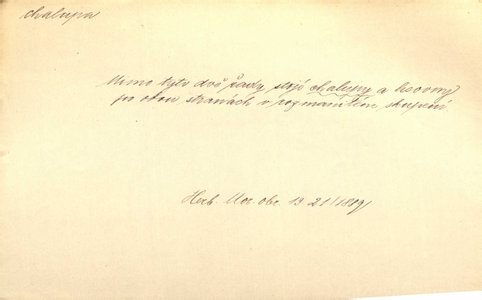 chalupa
Mimo tyto dvě řady stojí chalupy a
po obou stranách v rozmanitém skupení.
Herb. Mor. obr. 13 21/1819/